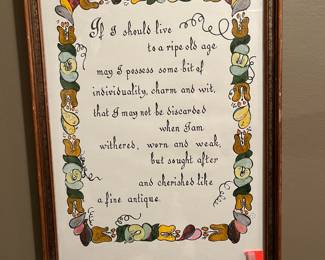 If I should live
to a ripe old age
may I possess some bit of
individuality, charm and wit,
that I may not be discarded
when I am
withered, worn and weak,
but sought after
and cherished like
a fine antique.